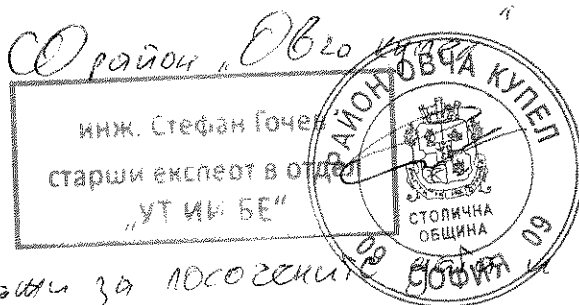 СО район „Овча
инж. Стефан Гочев
старши експерт в отдел
„УТ ИИ БЕ“
РАЙОН ОВЧА КУПЕЛ
СТОЛИЧНА
ОБЩИНА
09 СОФИЯ 09
за посочените